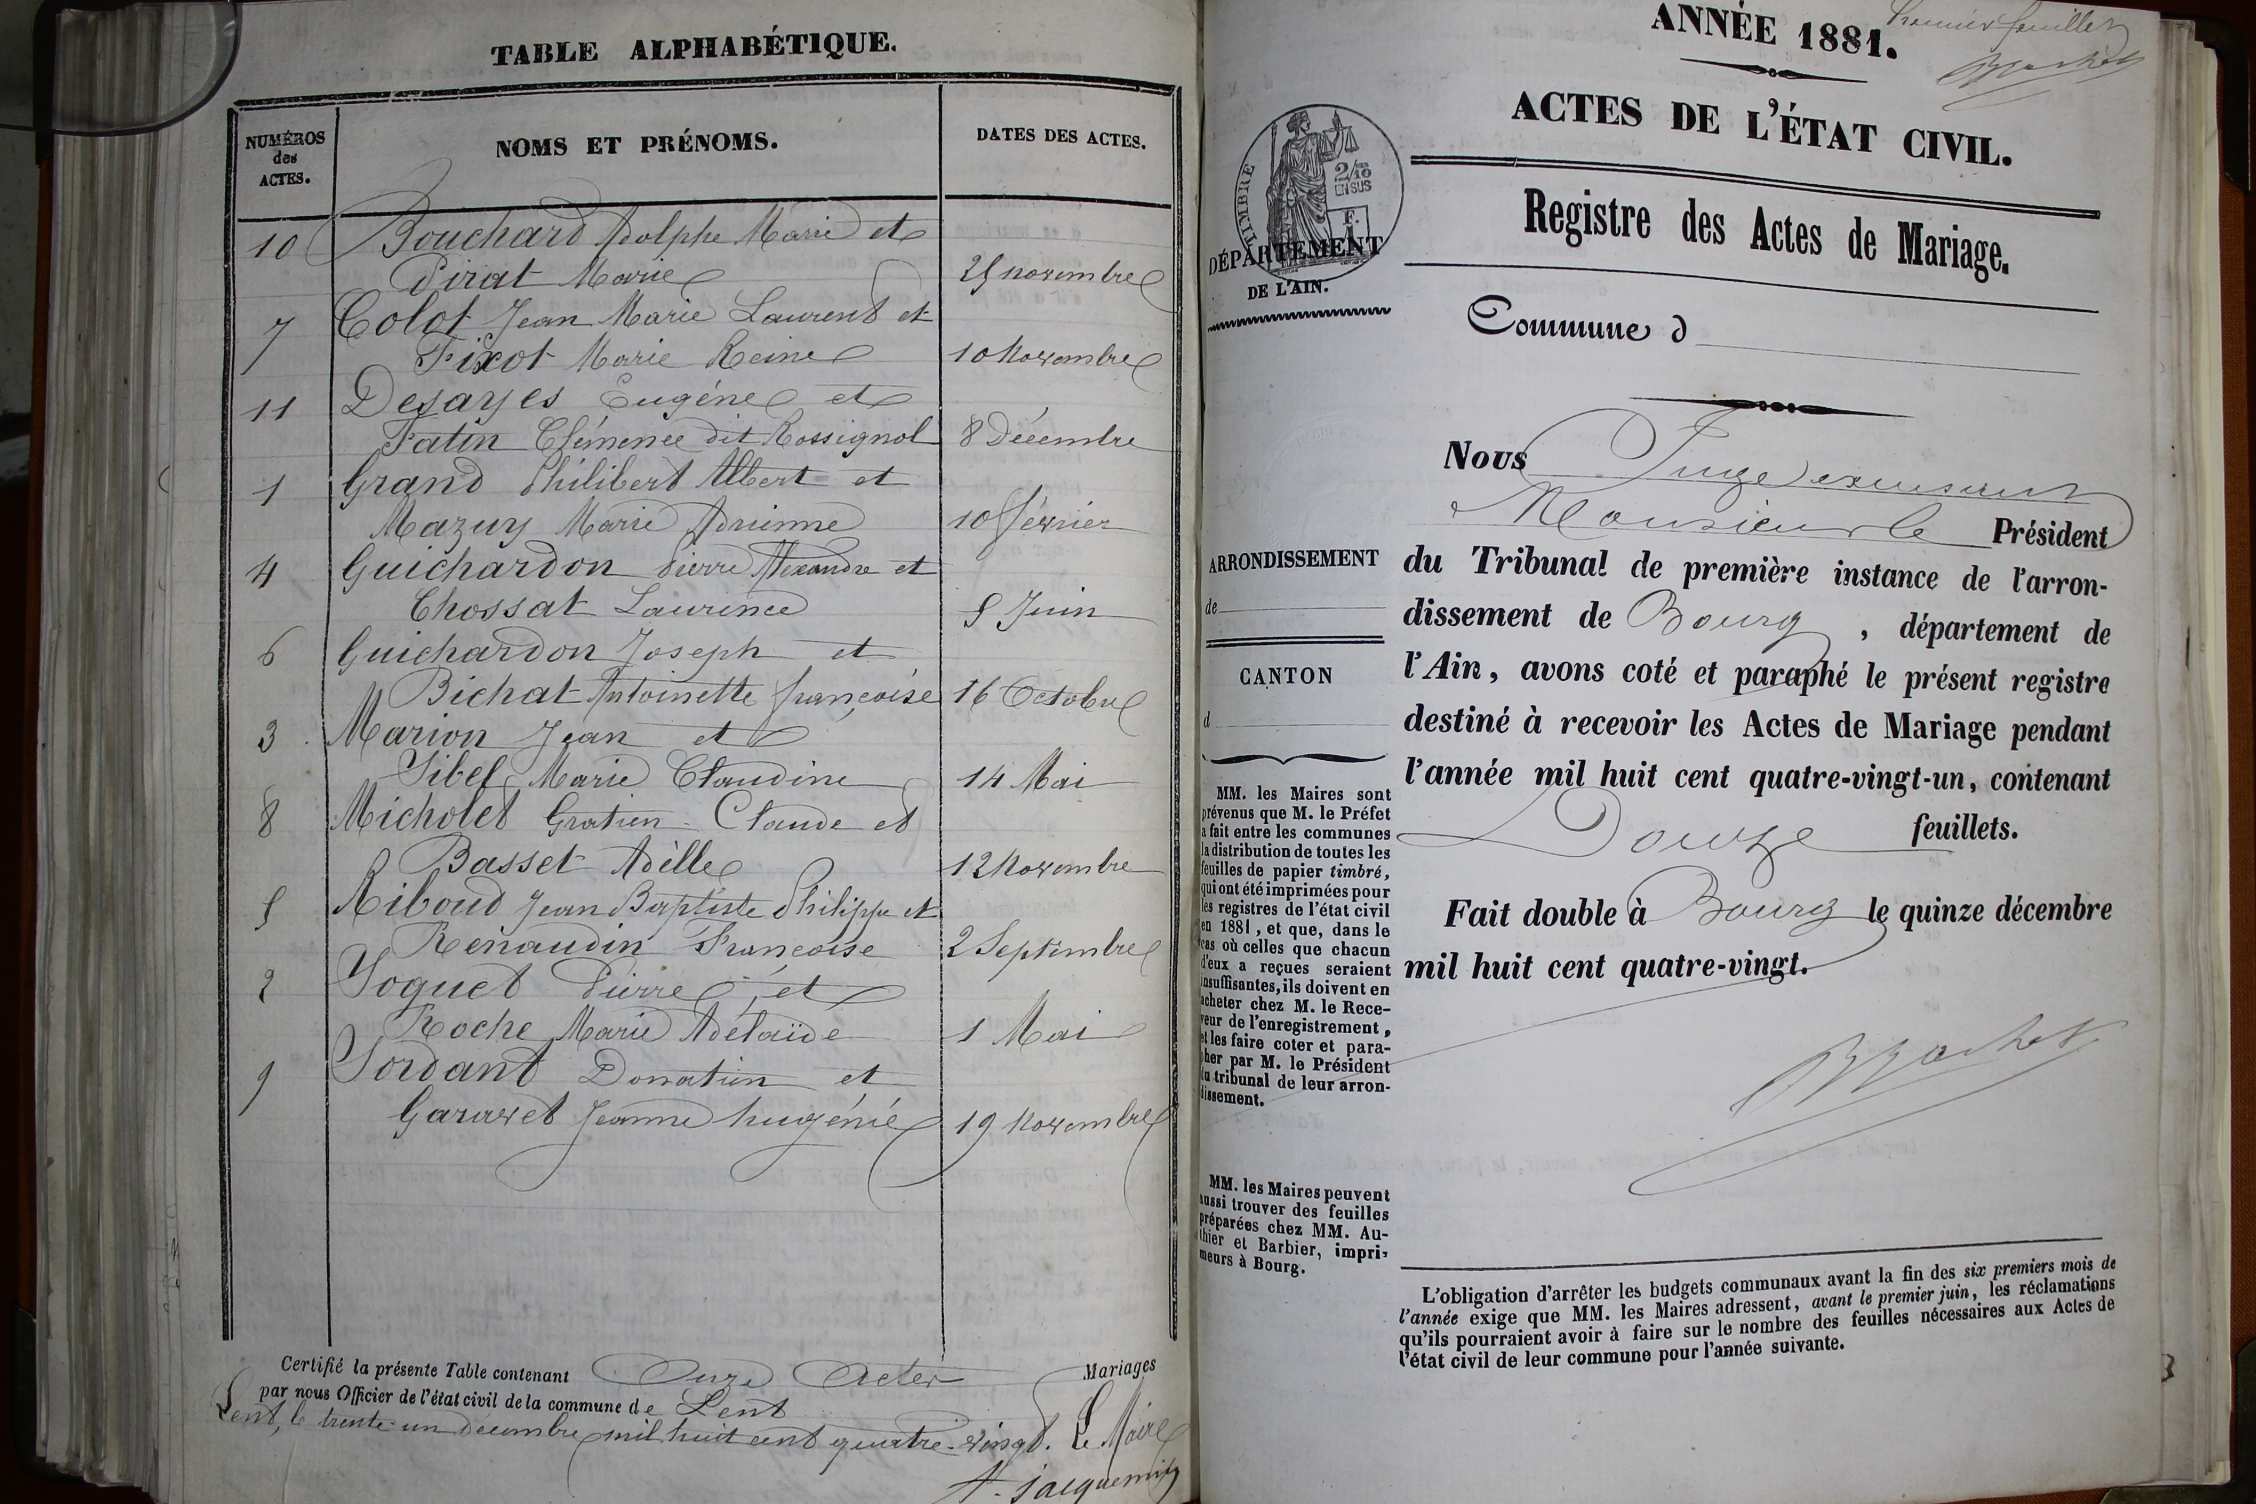 TABLE ALPHABÉTIQUE.
NUMÉROS
des
ACTES.
NOMS ET PRÉNOMS.
DATES DES ACTES.
10 Bouchard Adolphe Marie et
Pirat Marie 25 novembre
7 Colot Jean Marie Laurent et
Fixot Marie Reine 10 Novembre
11 Desayes Eugéne et
Fatin Clémence dit Rossignol 8 Décembre
1 Grand Philibert Albert et
Mazuy Marie Adrienne 10 février
4 Guichardon Pierre Alexandre et
Chossat Laurence 5 Juin
6 Guichardon Joseph et
Bichat Antoinette françoise 16 Octobre
3 Marion Jean et
Sibel Marie Claudine 14 Mai
8 Micholet Gratien Claude et
Basset Adèlle 12 Novembre
5 Riboud Jean Baptiste Philippe et
Renaudin Francoise 2 Septembre
2 Soquet Pierre et
Roche Marie Adélaïde 1 Mai
9 Sordant Donatien et
Gararet Jeanne hugénie 19 Novembre
Certifié la présente Table contenant Onze Actes Mariages
par nous Officier de l'état civil de la commune de Lent
Lent, le trente-un décembre mil huit cent quatre-vingt. Le Maire
A. jacquemin
Premier feuillet
ANNÉE 1881.
ACTES DE L'ÉTAT CIVIL.
TIMBRE
2/10
EN SUS
F.
DÉPARTEMENT
DE L'AIN.
Registre des Actes de Mariage.
Commune d
Nous Juge
Monsieur le Président
du Tribunal de première instance de l'arron-
dissement de Bourg, département de
l'Ain, avons coté et paraphé le présent registre
destiné à recevoir les Actes de Mariage pendant
l'année mil huit cent quatre-vingt-un, contenant
Douze feuillets.
Fait double à Bourg le quinze décembre
mil huit cent quatre-vingt.
ARRONDISSEMENT
de
CANTON
d
MM. les Maires sont
prévenus que M. le Préfet
a fait entre les communes
la distribution de toutes les
feuilles de papier timbré,
qui ont été imprimées pour
les registres de l'état civil
en 1881, et que, dans le
cas où celles que chacun
d'eux a reçues seraient
insuffisantes, ils doivent en
acheter chez M. le Rece-
veur de l'enregistrement,
et les faire coter et para-
pher par M. le Président
du tribunal de leur arron-
dissement.
MM. les Maires peuvent
aussi trouver des feuilles
préparées chez MM. Au-
thier et Barbier, impri-
meurs à Bourg.
L'obligation d'arrêter les budgets communaux avant la fin des six premiers mois de
l'année exige que MM. les Maires adressent, avant le premier juin, les réclamations
qu'ils pourraient avoir à faire sur le nombre des feuilles nécessaires aux Actes de
l'état civil de leur commune pour l'année suivante.